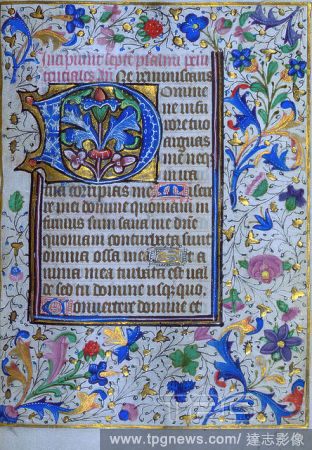 Incipiunt septe psalmi
Ne reminiscaris
Domine
ne in fu
rore tuo
arguas
me neq
in ira
tua corripias me Misere
re mei domine quoniam in
firmus sum sana me dne
quoniam conturbata sunt
omnia ossa mea Et a
nima mea turbata est val
de sed tu domine usq quo
Convertere domine et
www.tpgnews.com/ 達志影像